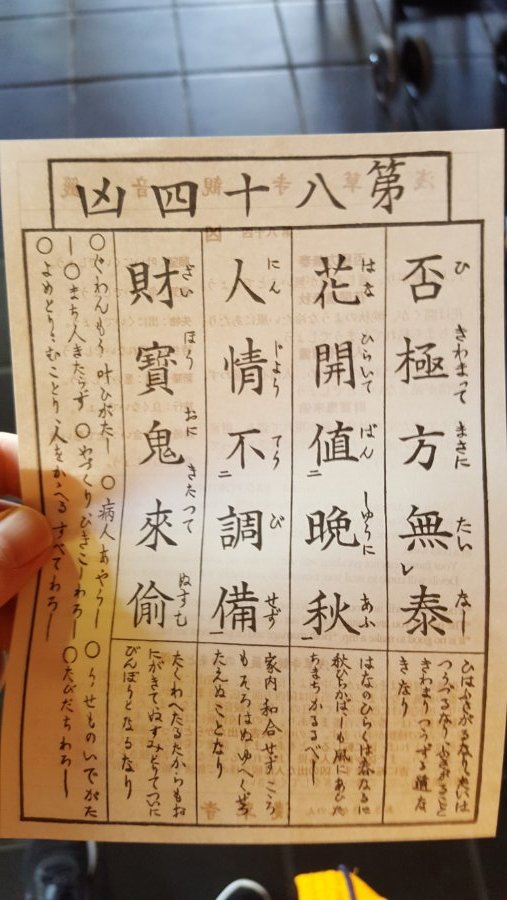 第八十四凶
否極方無泰
ひ きわまって まさに たい なし
ひはふさがるなりたいは
つうづるなりふさがること
きわまりつうずる道な
きなり
花開値晩秋
はな ひらいて ばん しゆうに あふ
はなのひらくは春なるに
秋ひらかばしも風にあひた
ちまちかるるべし
人情不調備
にん じよう てう び せず
家内和合せずこころ
もそろはぬゆへく
たえぬことなり
財寶鬼來偷
ざい ほう おに きたつて ぬすむ
たくわへたるたからもお
にがきてぬすみとりてついに
びんぼうとなるなり
〇ぐわんもう 叶ひがたし 〇病人あやうし 〇うせものいでがた
し 〇まち人きたらず 〇やづくりひきこしわろし 〇たびだちわろし
〇よめとりむことり人をかゝへるすべてわろし